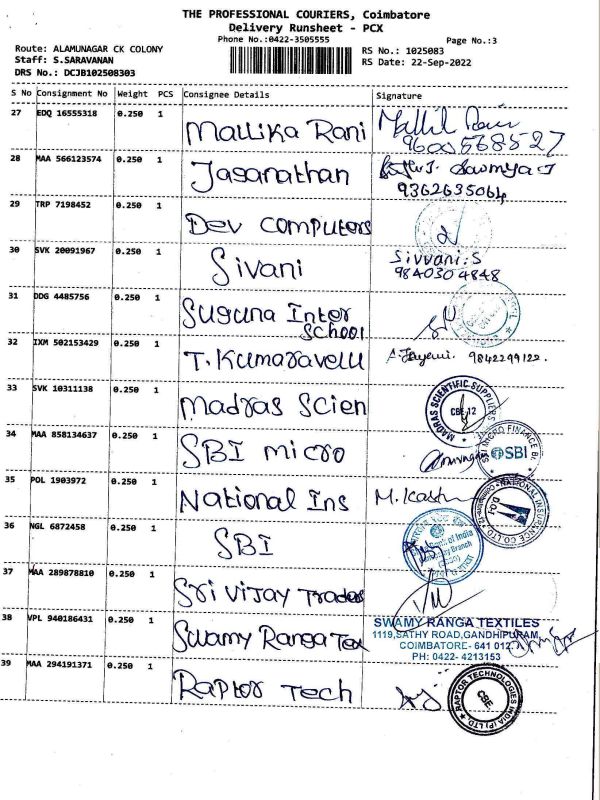 THE PROFESSIONAL COURIERS, Coimbatore
Delivery Runsheet - PCX
Phone No.:0422-3505555
Page No.:3
Route: ALAMUNAGAR CK COLONY
RS No.: 1025083
Staff: S.SARAVANAN
RS Date: 22-Sep-2022
DRS No.: DCJB102508303
S No Consignment No Weight PCS Consignee Details Signature
27 EDQ 16555318 0.250 1 Mallika Rani
9600568527
28 MAA 566123574 0.250 1 Jasanathan
9362635064
29 TRP 7198452 0.250 1 Dev computers
30 SVK 20091967 0.250 1 Sivani Sivvani.S
9840304848
31 DDG 4485756 0.250 1 Suguna Inter
School
32 IXM 502153429 0.250 1 T. Kumaravelu A. Jayemi. 9842299122.
33 SVK 10311138 0.250 1 Madras Scien
MADRAS SCIENTIFIC SUPPLIERS
CBE-12
34 MAA 858134637 0.250 1 SBI micro
SBI
35 POL 1903972 0.250 1 National Ins
NATIONAL INSURANCE CO LTD
36 NGL 6872458 0.250 1 SBI
Bank of India
Branch
37 MAA 289878810 0.250 1 Sri Vijay Trades
38 VPL 940186431 0.250 1 Swamy Ranga Tex
SWAMY RANGA TEXTILES
1119,SATHY ROAD,GANDHIPURAM,
COIMBATORE- 641 012.
PH: 0422- 4213153
39 MAA 294191371 0.250 1 Raptor Tech
RAPTOR TECHNOLOGIES INDIA (P) LTD
CBE